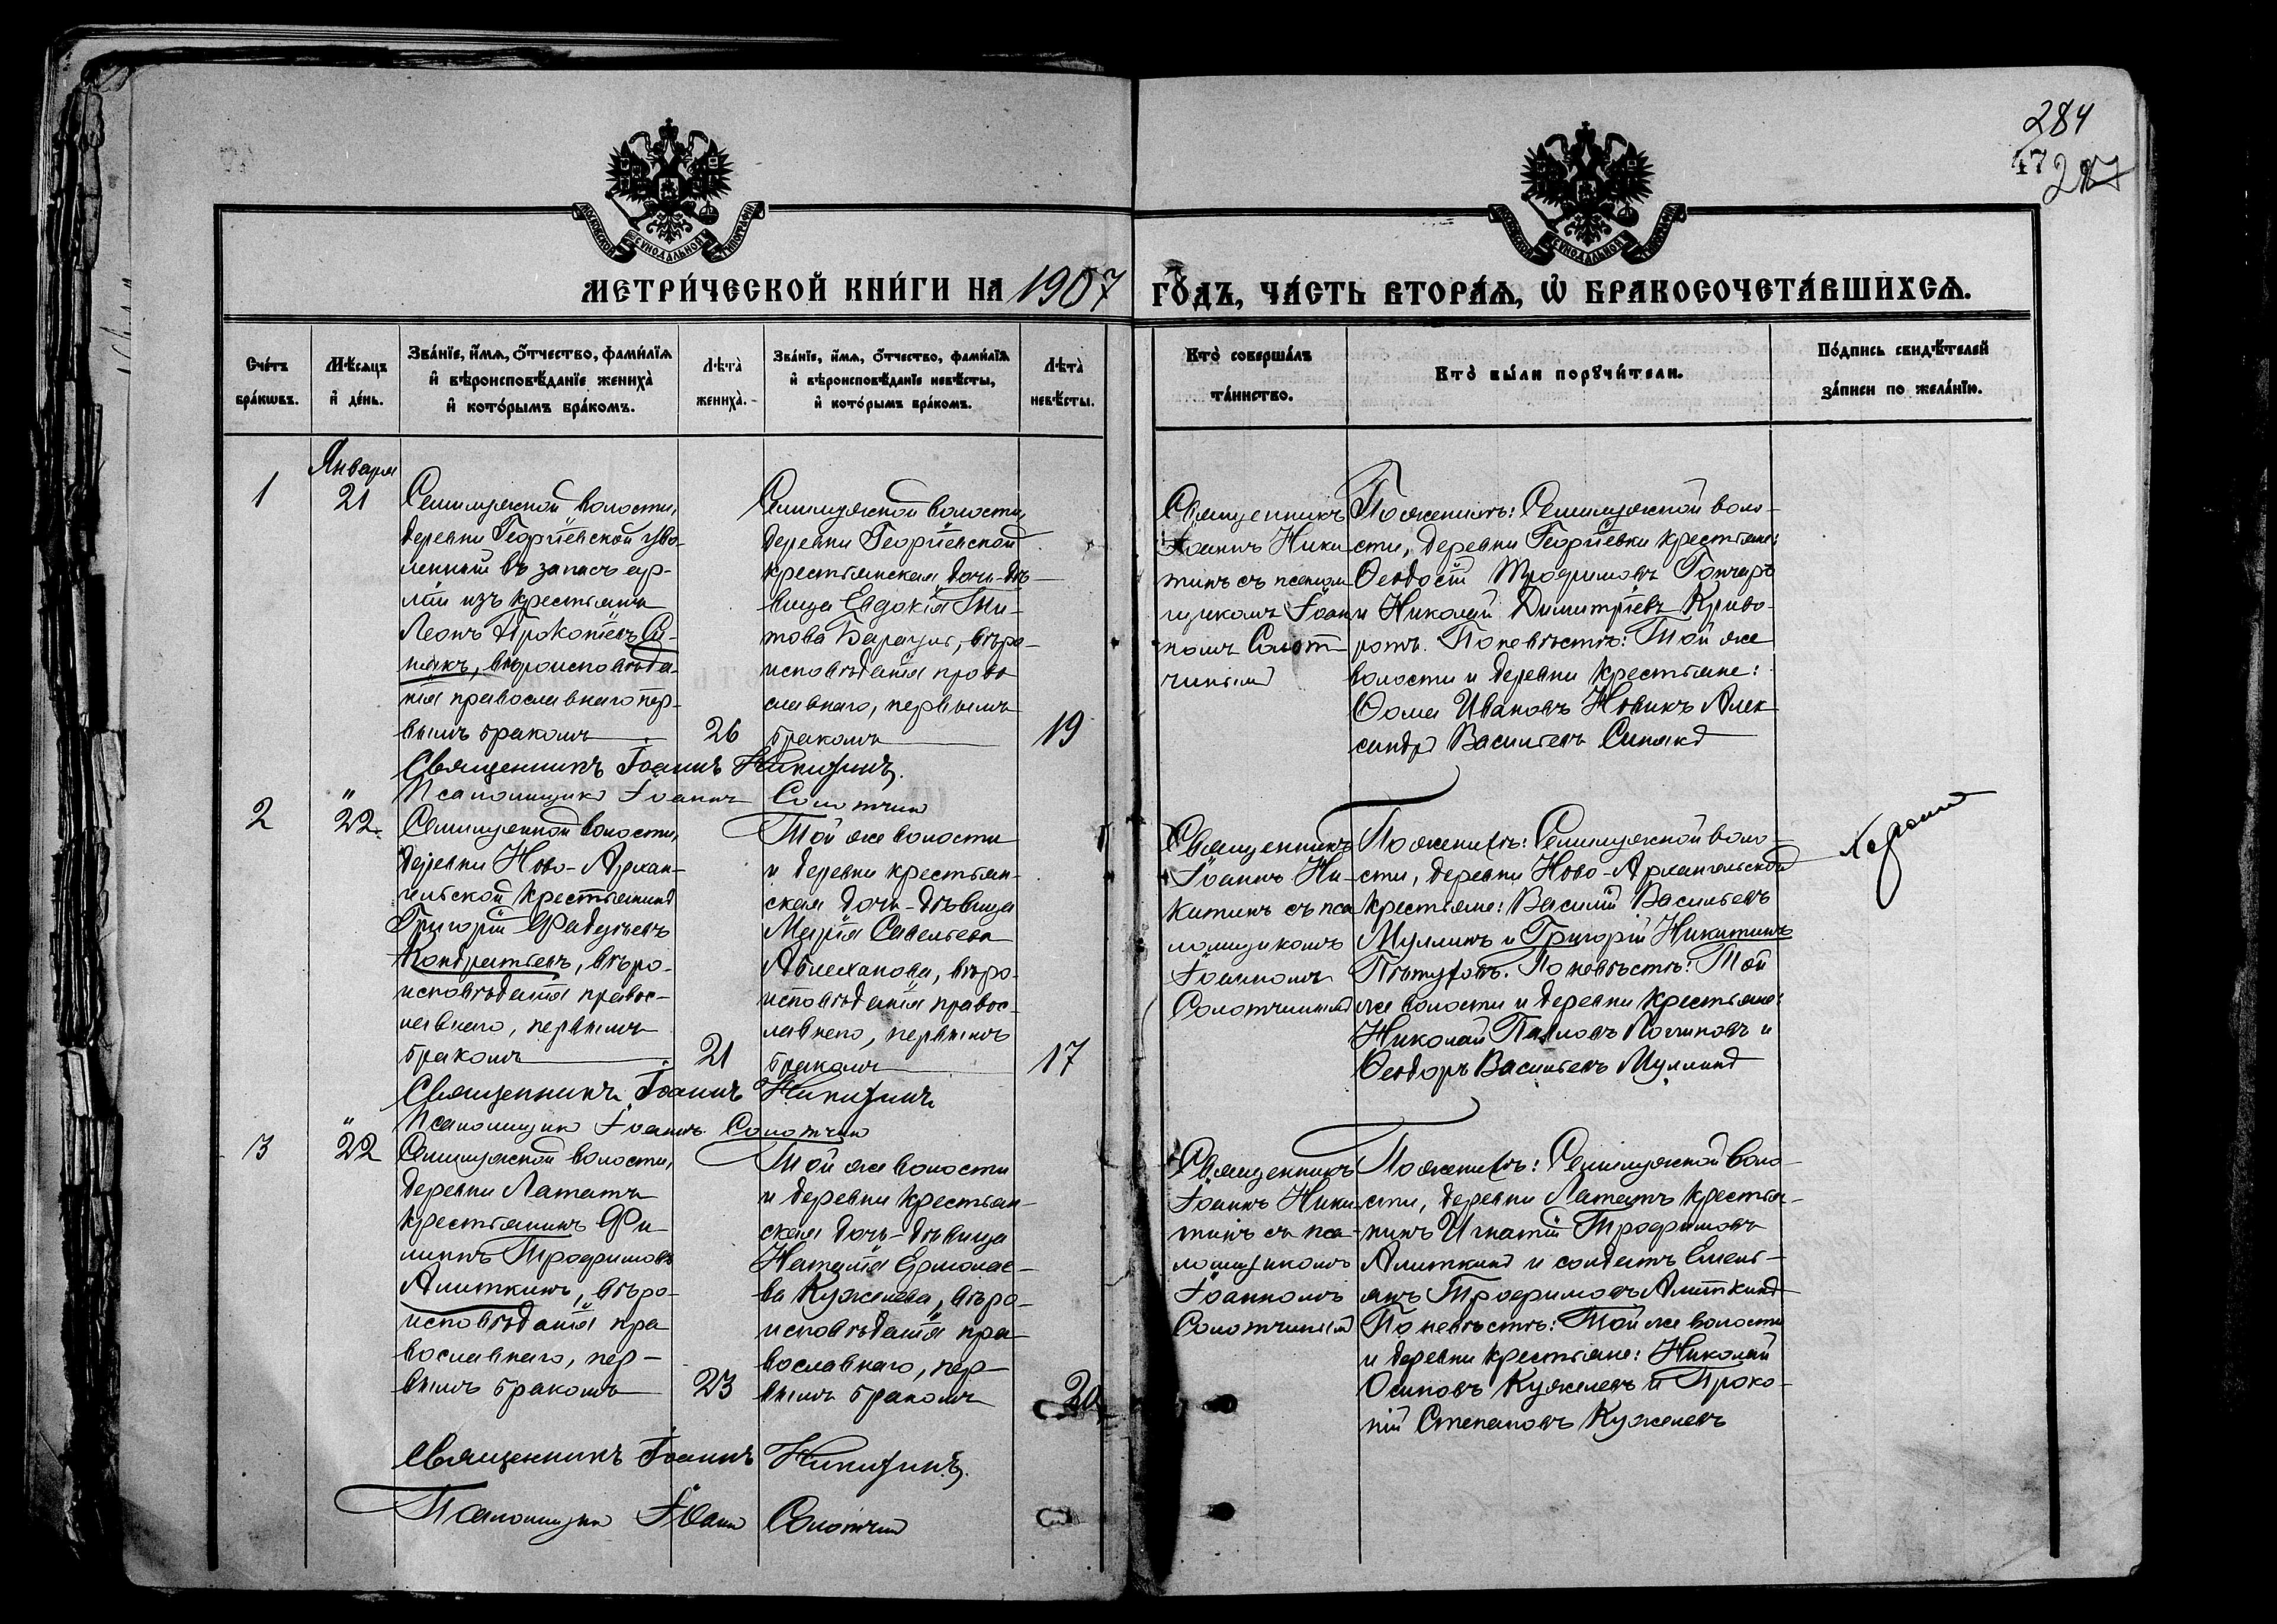 284
47 287
МОСКОВСКОЙ СѴНОДАЛЬНОЙ ТИПОГРАФІИ
МОСКОВСКОЙ СѴНОДАЛЬНОЙ ТИПОГРАФІИ
МЕТРИ́ЧЕСКОЙ КНИ́ГИ НА 1907 ГО́ДЪ, ЧА́СТЬ ВТОРА́Ѧ, Ѽ БРАКОСОЧЕТА́ВШИХСѦ.
Сче́тъ бра́кѡвъ.
Мѣ́сяцъ и҆ де́нь.
Зва́нїе, и҆́мѧ, ѻ҆́тчество, фами́лїѧ и҆ вѣроисповѣ́данїе жениха̀ и҆ кото́рымъ бра́комъ.
Лѣта̀ жениха̀.
Зва́нїе, и҆́мѧ, ѻ҆́тчество, фами́лїѧ и҆ вѣроисповѣ́данїе невѣ́сты, и҆ кото́рымъ бра́комъ.
Лѣта̀ невѣ́сты.
Кто̀ соверша́лъ та́инство.
Кто̀ бы́ли порꙋчи́тели.
По́дпись свидѣ́телей за́писи по жела́нїю.
Января
1
21
Семилужной волости,
деревни Георгіевской уво-
ленный въ запасъ ар-
міи изъ крестьянъ
Леонъ Прокопіевъ Си-
някъ, вѣроисповѣда-
нія православнаго пер-
вымъ бракомъ
26
Семилужной волости,
деревни Георгіевской
крестьянская дочь-дѣ-
вица Евдокія
това вѣро-
исповѣданія право
славнаго, первымъ
бракомъ
19
Священникъ
Іоаннъ Ники
тинъ съ псалом
щикомъ Іоан
номъ Солот
чинымъ
По женихѣ: Семилужной воло-
сти, деревни Георгіевки крестьяне:
Ѳеодосій Трофимовъ Гончаръ
и Николай Димитріевъ Криво-
ротъ. По невѣстѣ: Той же
волости и деревни крестьяне:
Ѳома Ивановъ Новикъ Алек
сандръ Васильевъ Синякъ
Священникъ Іоаннъ Никитинъ.
Псаломщикъ Іоаннъ Солотчинъ
2
"
22
Семилужной волости,
деревни Ново-Архан-
гельской крестьянинъ
Григорій Фадѣевъ
Кондратьевъ, вѣро-
исповѣданія правос-
лавнаго, первымъ
бракомъ
21
Той же волости
и деревни крестьян-
ская дочь-дѣвица
Марія Савельева
вѣро-
исповѣданія правос-
лавнаго, первымъ
бракомъ
17
Священникъ
Іоаннъ Ни-
китинъ съ пса
ломщикомъ
Іоанномъ
Солотчинымъ
По женихѣ: Семилужной воло-
сти, деревни Ново-Архангельской
крестьяне: Василій Васильевъ
Муллинъ и Григорій Никитинъ
Пѣтуховъ. По невѣстѣ: Той
же волости и деревни крестьяне:
Николай Павловъ и
Ѳеодоръ Васильевъ Муллинъ
Священникъ Іоаннъ Никитинъ
Псаломщикъ Іоаннъ Солотчинъ
3
"
22
Семилужной волости,
деревни Лататъ
крестьянинъ Фи-
липпъ Трофимовъ
Алиткинъ, вѣро-
исповѣданія пра
вославнаго, пер-
вымъ бракомъ
23
Той же волости
и деревни крестьян-
ская дочь-дѣвица
Наталія Ермолае-
ва Кужелева, вѣро-
исповѣданія пра-
вославнаго, пер-
вымъ бракомъ
20
Священникъ
Іоаннъ Ники
тинъ съ пса-
ломщикомъ
Іоанномъ
Солотчинымъ
По женихѣ: Семилужной воло-
сти, деревни Лататъ крестья-
нинъ Игнатій Трофимовъ
Алиткинъ и солдатъ Емель-
янъ Трофимовъ Алиткинъ
По невѣстѣ: Той же волости
и деревни крестьяне: Николай
Осиповъ Кужелевъ и Проко-
пій Степановъ Кужелевъ
Священникъ Іоаннъ Никитинъ.
Псаломщикъ Іоаннъ Солотчинъ